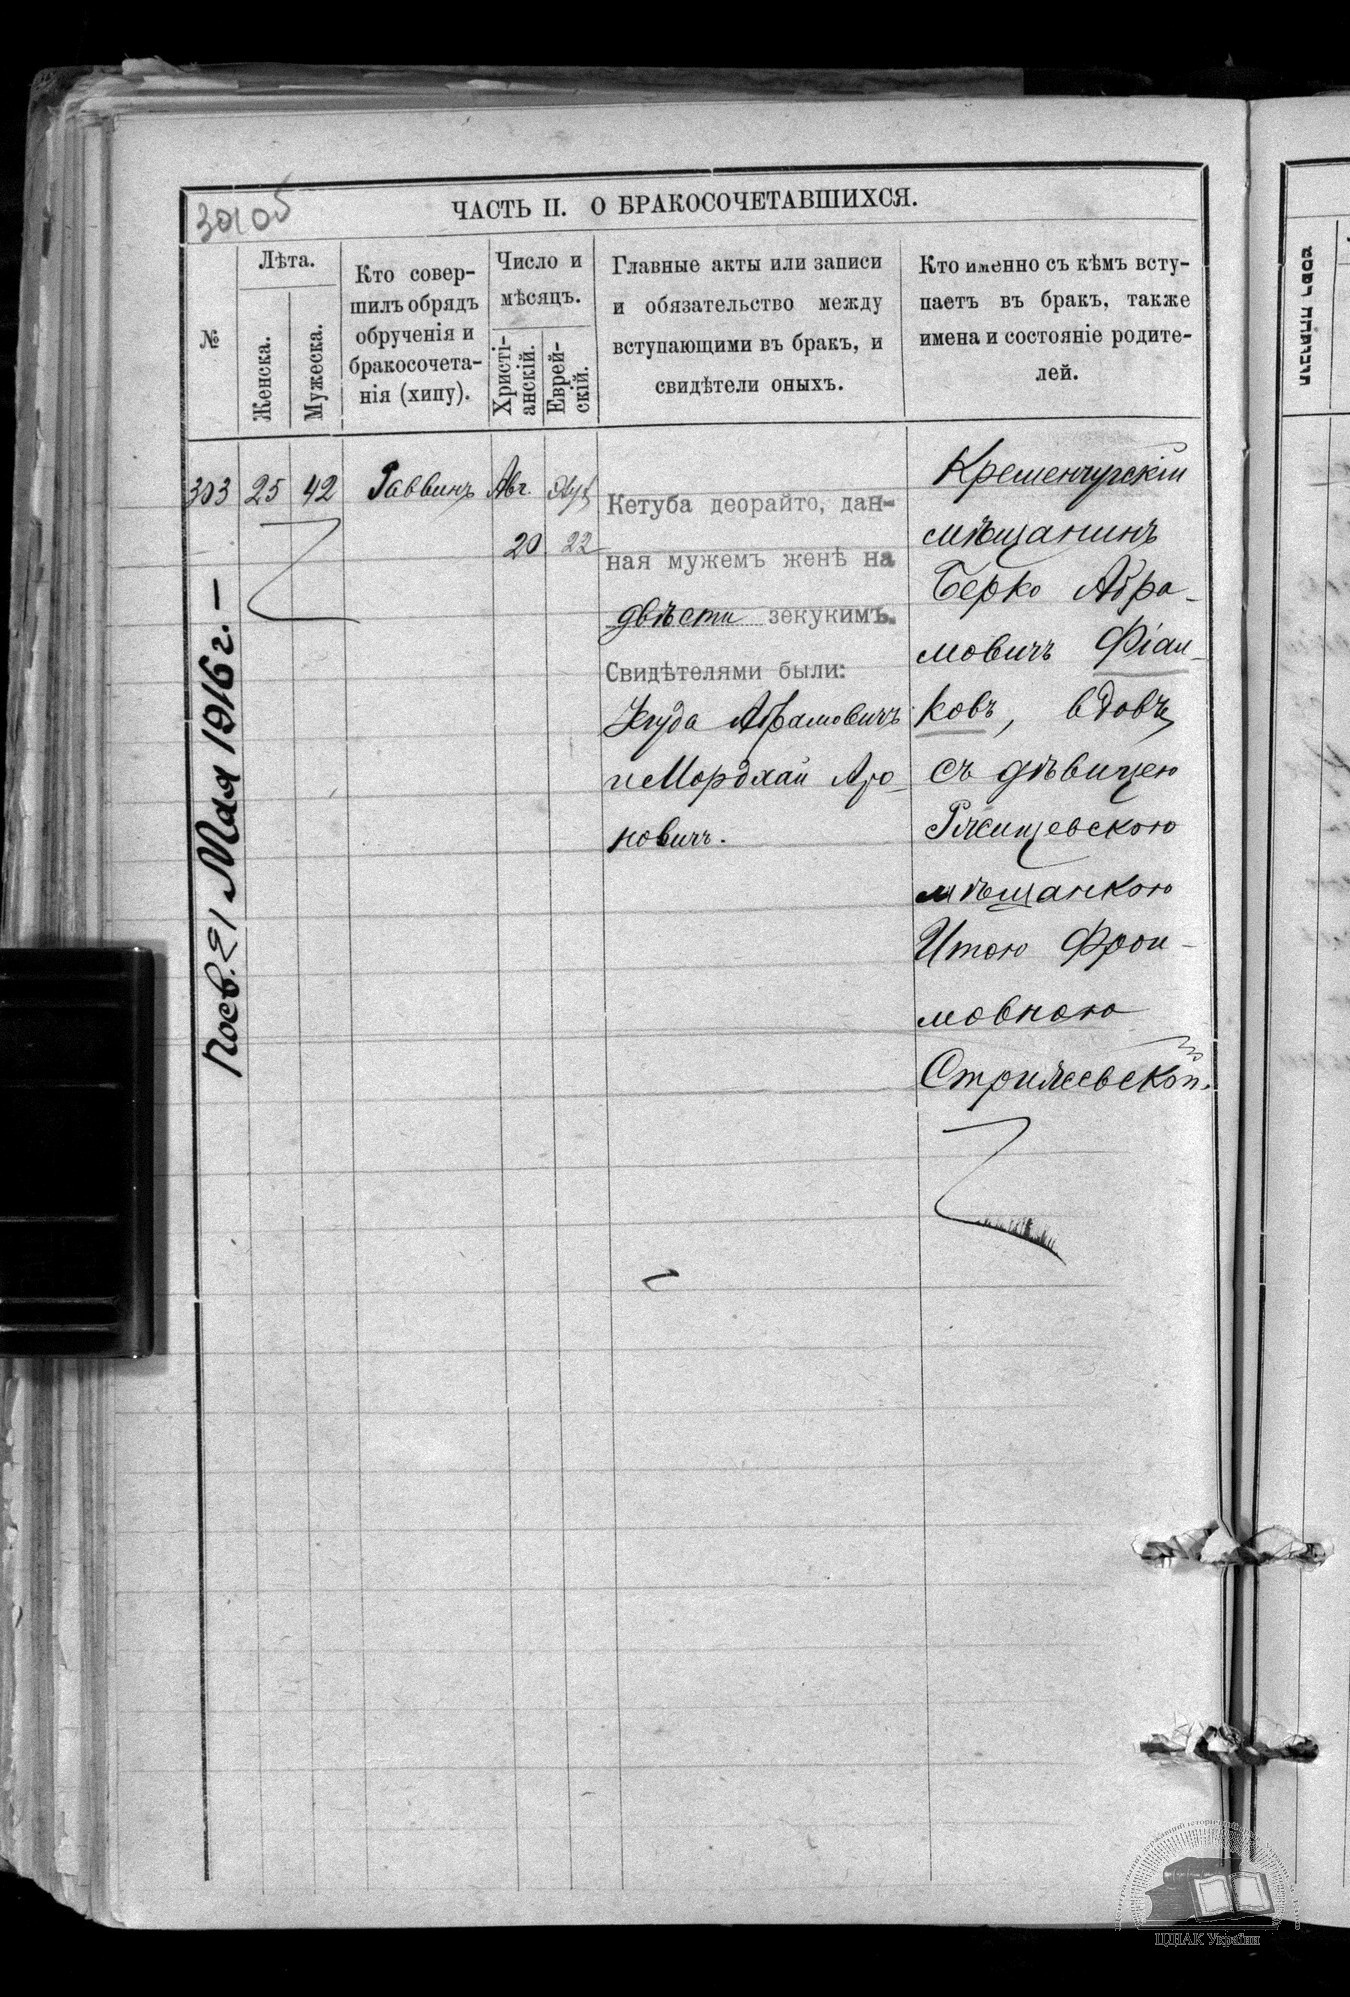 301об
ЧАСТЬ II. О БРАКОСОЧЕТАВШИХСЯ.
№
Лѣта.
Женска.
Мужеска.
Кто совер-
шилъ обрядъ
обрученія и
бракосочета-
нія (хипу).
Число и
мѣсяцъ.
Христі-
анскій.
Еврей-
скій.
Главные акты или записи
и обязательство между
вступающими въ бракъ, и
свидѣтели оныхъ.
Кто именно съ кѣмъ всту-
паетъ въ бракъ, также
имена и состояніе родите-
лей.
303 25 42 Раввинъ Авг.
20 22
Кетуба деорайто, дан-
ная мужемъ женѣ на
двѣсти зекукимъ.
Свидѣтелями были:
Іегуда Абрамовичъ
и Мордхай Аро-
новичъ.
Кременчугскій
мѣщанинъ
Берко Абра-
мовичъ Фіал-
ковъ, вдовецъ
съ дѣвицею
Ржищевскою
мѣщанкою
Итою Фрои-
мовною
Стрижевской.
Посв. 21 Мая 1916 г. —
ЦДІАК України